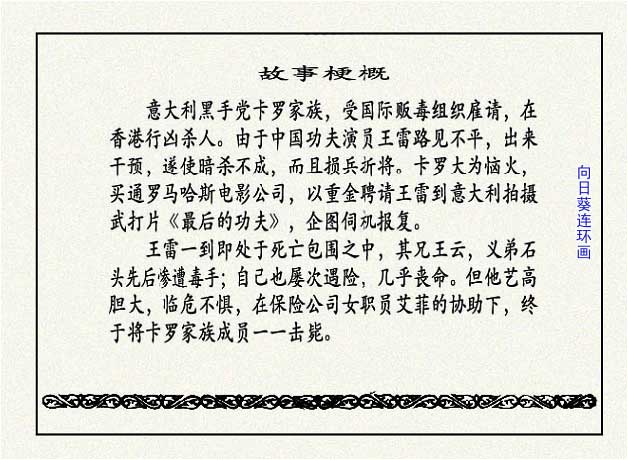 故事梗概
意大利黑手党卡罗家族，受国际贩毒组织雇请，在
香港行凶杀人。由于中国功夫演员王雷路见不平，出来
干预，遂使暗杀不成，而且损兵折将。卡罗大为恼火，
买通罗马哈斯电影公司，以重金聘请王雷到意大利拍摄
武打片《最后的功夫》，企图伺机报复。
王雷一到即处于死亡包围之中，其兄王云，义弟石
头先后惨遭毒手；自己也屡次遇险，几乎丧命。但他艺高
胆大，临危不惧，在保险公司女职员艾菲的协助下，终
于将卡罗家族成员一一击毙。
向日葵连环画